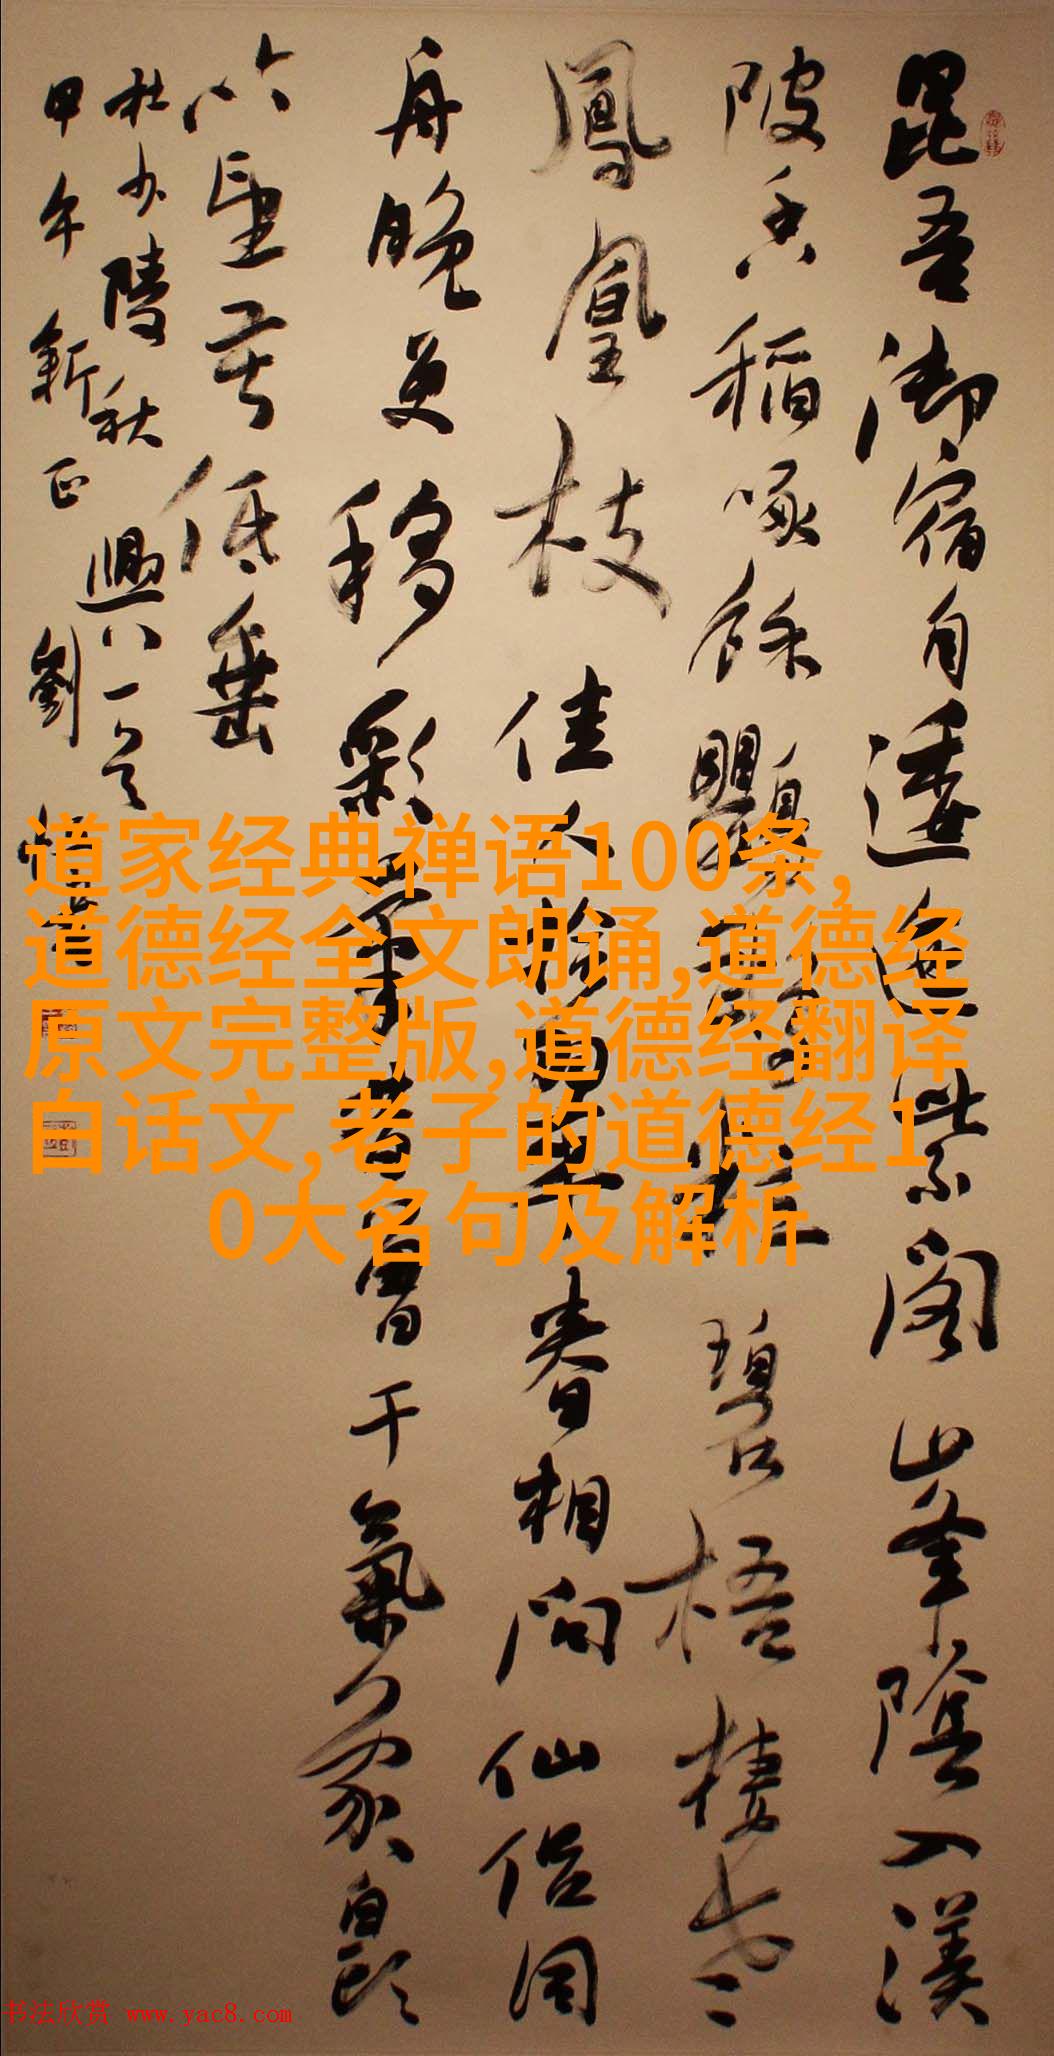 昆吾御宿自逶迤紫閣山峯陰入渼
陂香稻啄餘鸚鵡粒碧梧棲老
鳳凰枝佳人拾翠春相問仙侣同
舟晚更移彩筆昔曾干氣象白頭
吟望苦低垂
杜少陵秋興八一首
甲午新正劉
道家经典禅语100条,
道德经全文朗诵,道德经
原文完整版,道德经翻译
白话文,老子的道德经1
0大名句及解析
书法欣赏 www.yac8.com